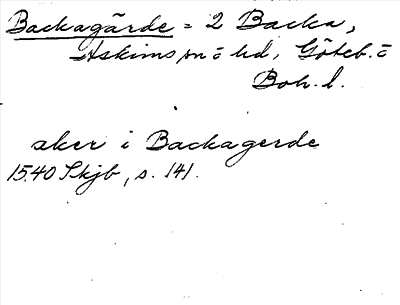 Backagärde = 2 Backa,
Askims sn o hd, Göteb. o
Boh. l.
aker i Backagerde
1540 Skjb, s. 141.